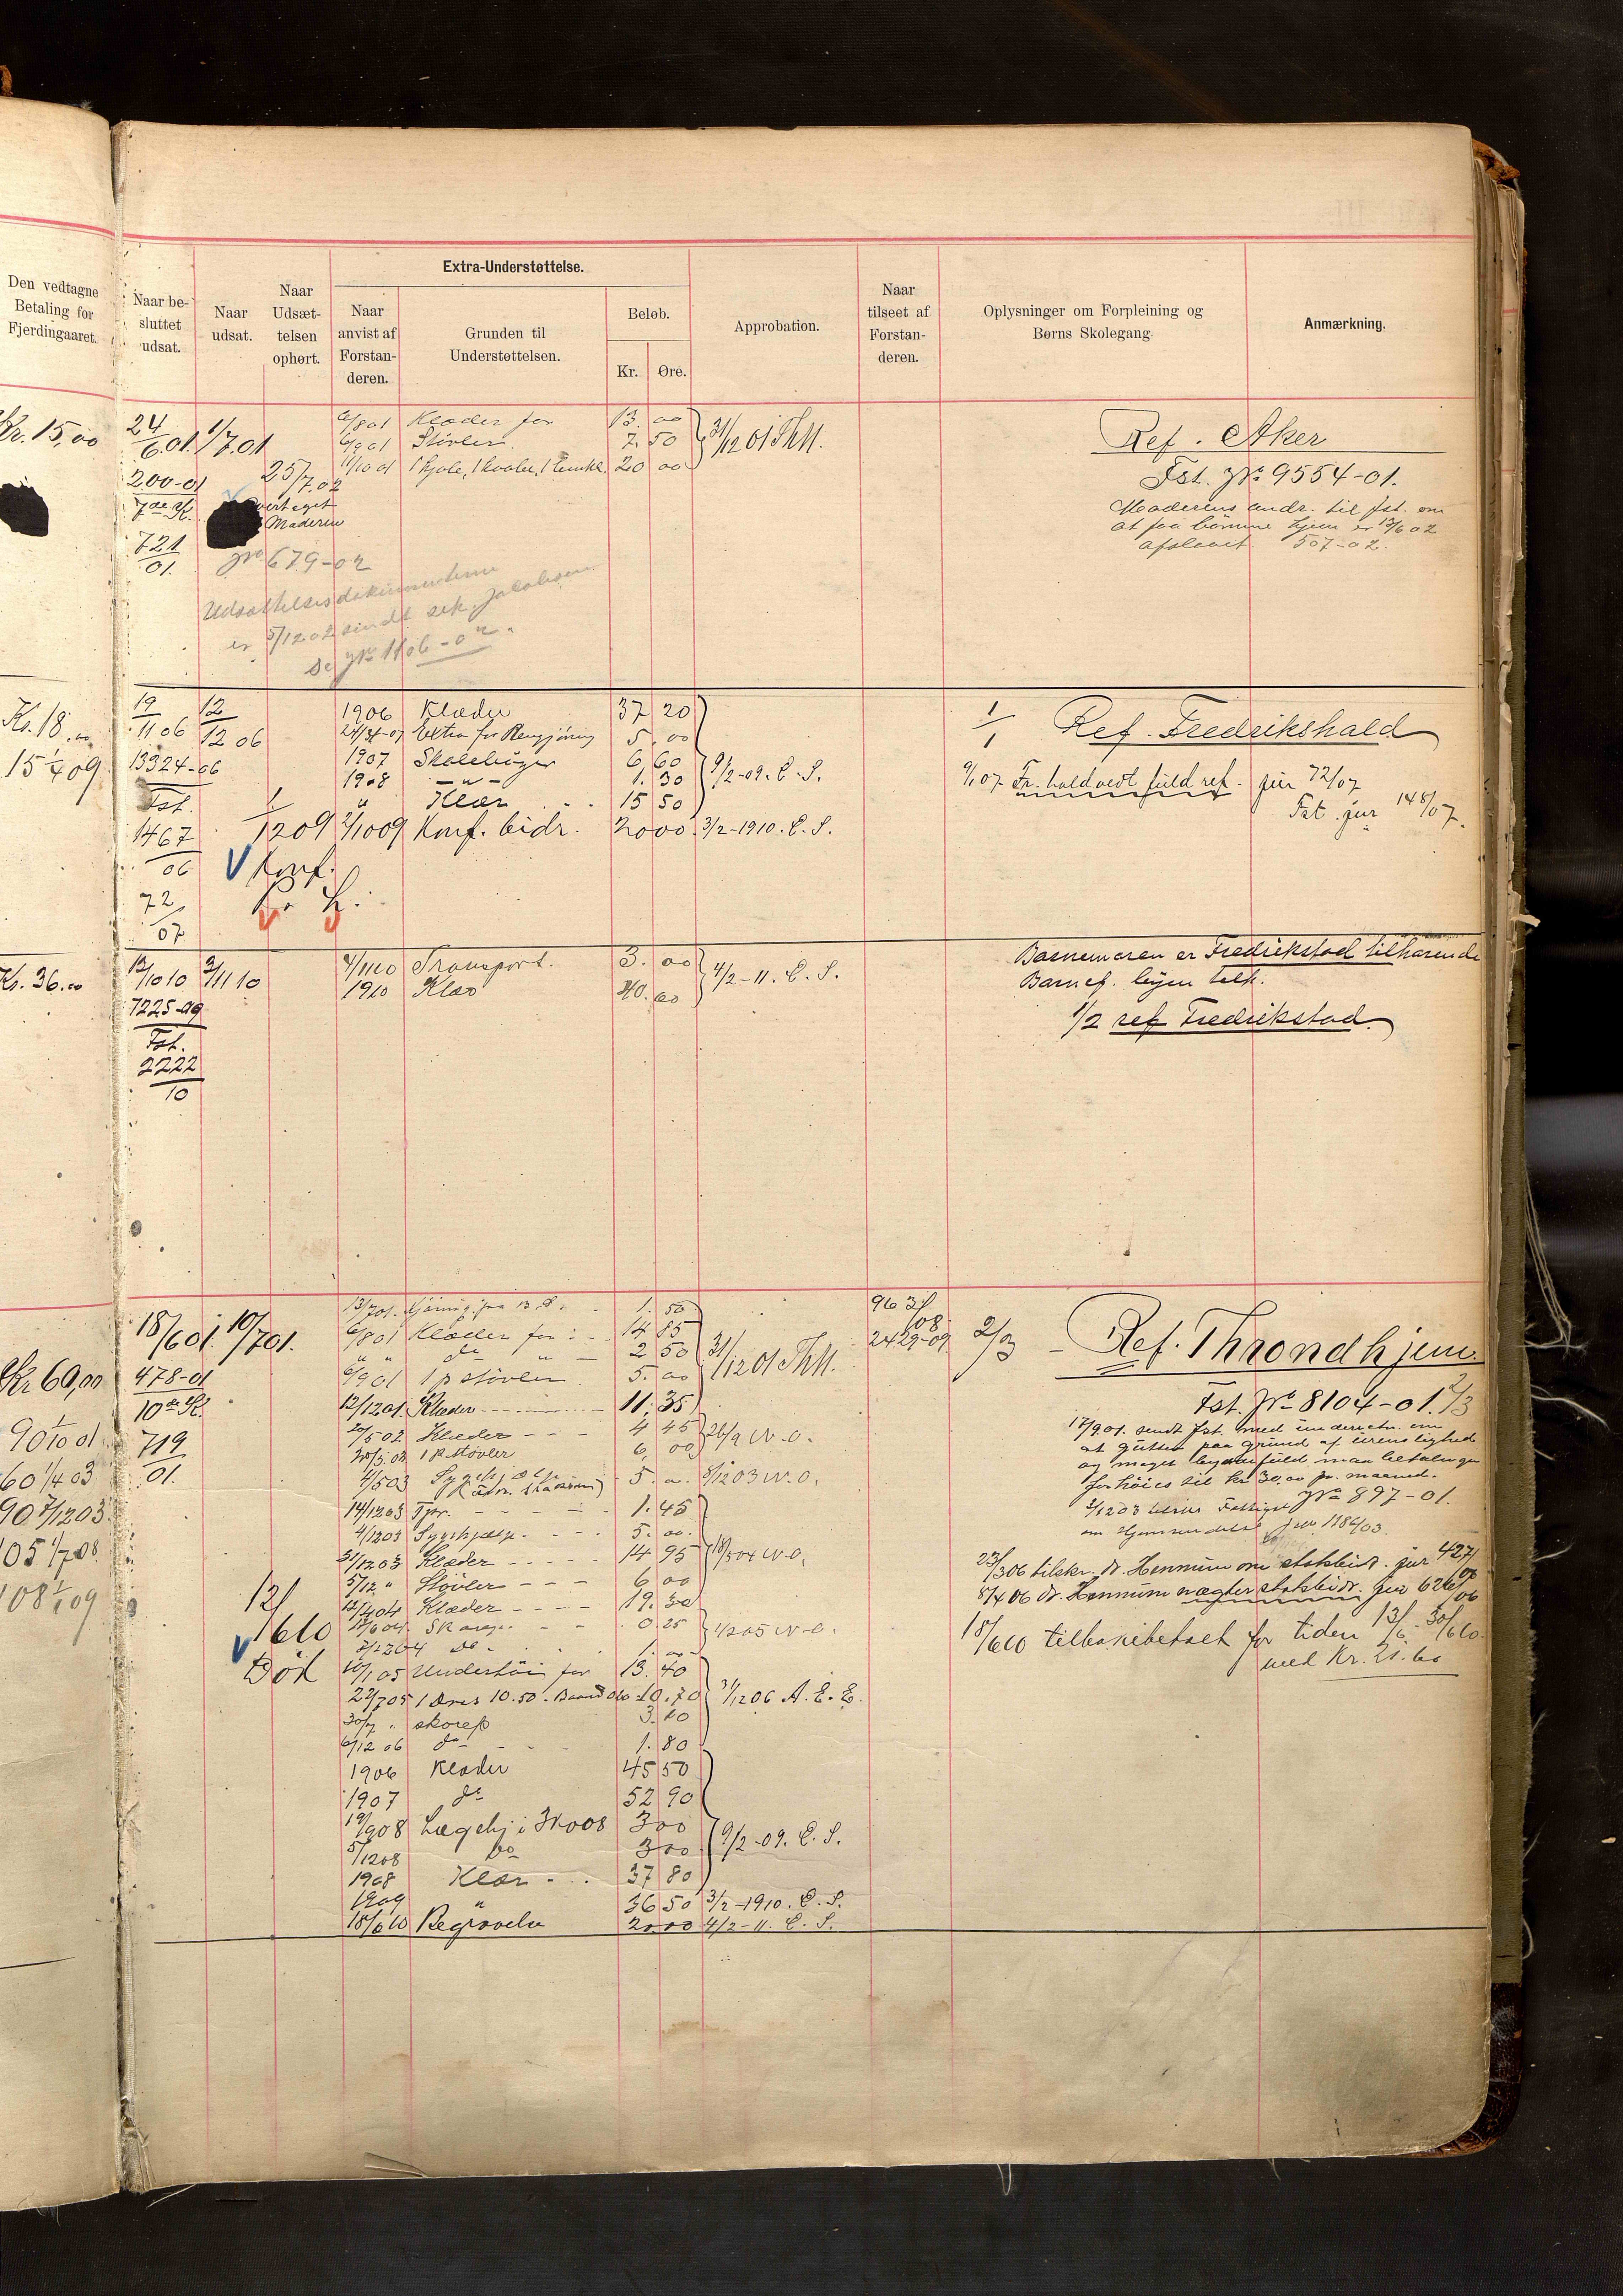 Den vedtagne
Betaling for
Fjerdingaaret.
Naar be-
sluttet
udsat.
Naar
udsat.
Naar
Udsæt-
telsen
ophørt.
Extra-Understøttelse.
Naar
anvist af
Forstan-
deren.
Grunden til
Understøttelsen.
Beløb.
Kr. Øre.
Approbation.
Naar
tilseet af
Forstan-
deren.
Oplysninger om Forpleining og
Børns Skolegang.
Anmærkning.
Kr. 15,00
24/6 01. 1/7 01
200-01
721
01.
25/7 02
Overtaget
Moderen
No 679-02
Udsættelsesdokumenterne
er 5/12 02 sendt sek. Jacobsen
Se No 1106-02.
6/8 01 Klæder for 13.00
6/9 01 Støvler 7.50
11/10 01 1 kjole, 1 kaabe, 1 20 00
31/12 01
Ref. Aker
Fst. No 9554-01.
Moderens andr. til fst. om
at faa børnene hjem er 13/6 02
afslaaet 507-02.
Kr. 18.00
15 1/4 09
19/11 06 12/12 06
13324-06
Fst.
1467
06
72
07
1/12 09
Konf.
1906 Klæder 37 20
Extra for Rengjøring 5.00
1907 Skolebøger 6,60
1908 — " — 1.30
" Klær 15 50
2/10 09 Konf. bidr. 20 00
9/2-09. C. S.
3/2-1910. C. S.
1/1 Ref. Fredrikshald
9/1 07 Fr.hald vedt. fuld ref. jur 72/07
Fst. jur 148/07.
Kr. 36.00
12/10 10 2/11 10
7225-09
Fst.
2222
10
4/11 10 Transport. 3.00
1910 Klær 40.60
4/2-11. C. S.
Barnemoren er Fredrikstad tilhørende
1/2 ref Fredrikstad.
Kr 60,00
90 1/10 01
60 1/4 03
90 7/12 03
105 1/7 08
108 1/1 09
18/6 01. 10/7 01.
478-01
719
01.
12/
16 10
Död
13/7 01. 1.50
6/8 01 Klæder for: - 14 85
" " do " - 2 50
6/9 01 1 p støvler 5.00
31/12 01
12/12 01. Klæder 11.35
20/5 02 Klæder 4 45
1 p støvler 6,00
26/9 W.O.
4/5 03 5.00 8/12 03 W.O.
14/12 03 1.45
4/12 03 Sygehjælp. 5.00.
21/12 03 Klæder 14 95
5/12 " Støvler 6 00
12/4 04 Klæder 19.30
0.25
18/5 04 W.O.
2/12 04 do
4/2 05 W.O.
10/1 05 Undertøi for 13.40
22/7 05 1 Dres 10.50. 10.70
30/7 " skorep 3.10
6/12 06 do 1.80
31/12 06 A. E. E.
1906 Klæder 45 50
1907 do 52 90
19/9 08 Lægehj. i 3 00
5/12 08 Do 3 00
1908 Klær 37 80
1909 " 36 50
18/6 10 Begravelse 20.00
9/2-09. C. S.
3/2-1910. C. S.
4/2-11. C. S.
963/08
2429-09
2/3 - Ref. Throndhjem
Fst. No 8104-01. 2/3
17/9 01. sendt Fst. med underretn. om
at gutten paa grund af urenslighed
og meget maa betalingen
forhöies til kr 30,00 pr. maaned.
No 897-01.
om Hjemsendelse jur 1186/03.
23/3 06 tilskr. dr. Hennum om statsbidr. jur 427/06
8/4 06 dr. Hennum nægter statsbidr. jur 626/06
18/6 10 tilbakebetalt for tiden 13/6 - 30/6 10.
med Kr. 21.60